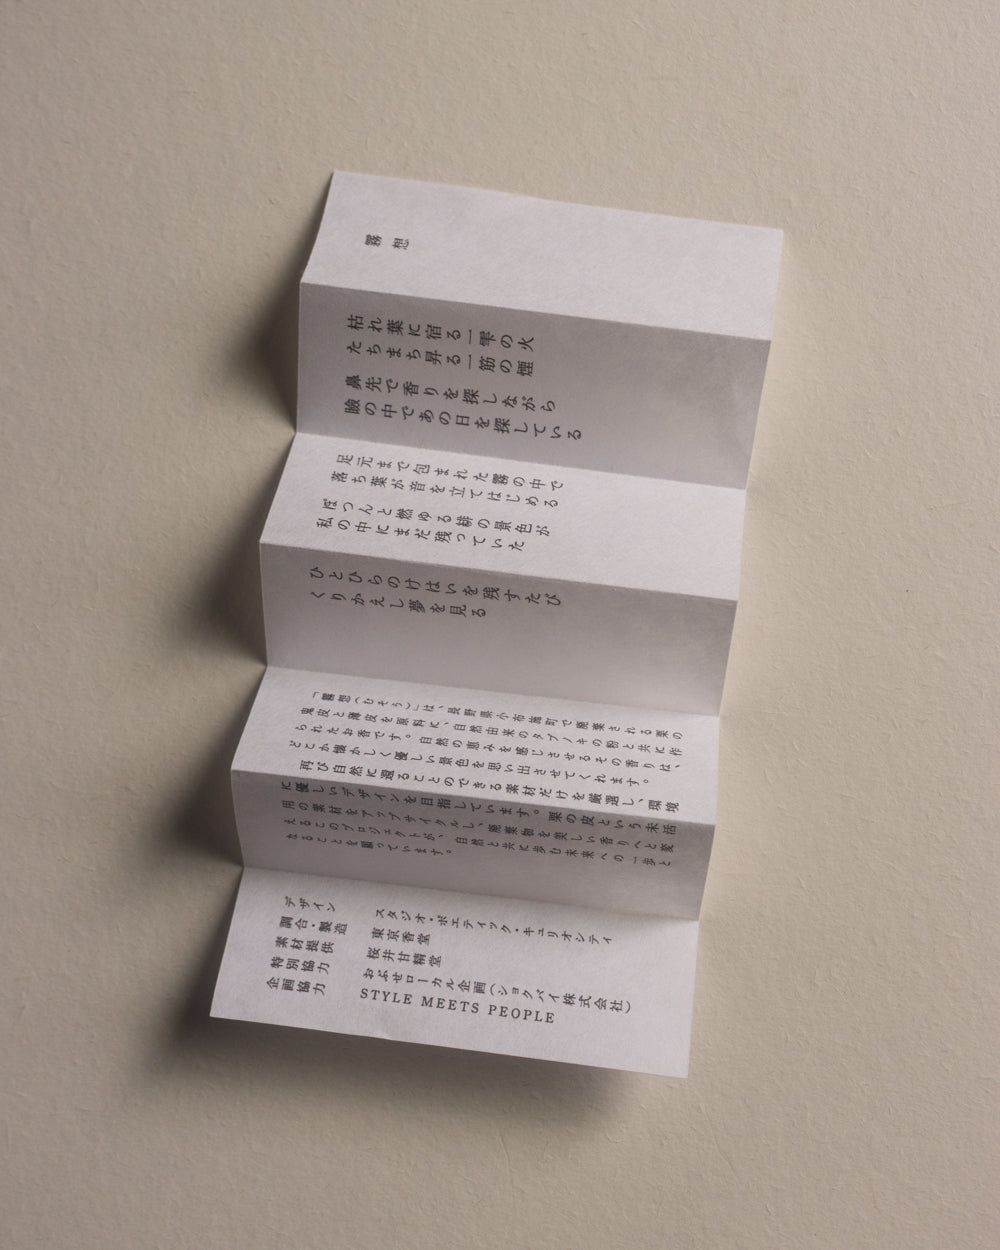 霧想
枯れ葉に宿る一雫の火
たちまち昇る一筋の煙
鼻先で香りを探しながら
瞼の中であの日を探している
足元まで包まれた霧の中で
落ち葉が音を立てはじめる
ぽつんと燃ゆる緋の景色が
私の中にまだ残っていた
ひとひらのけはいを残すたび
くりかえし夢を見る
「霧想(むそう)」は、長野県小布施町で廃棄される栗の
鬼皮と薄皮を原料に、自然由来のタブノキの粉と共に作
られたお香です。自然の恵みを感じさせるその香りは、
どこか懐かしく優しい景色を思い出させてくれます。
再び自然に還ることのできる素材だけを厳選し、環境
に優しいデザインを目指しています。栗の皮という未活
用の素材をアップサイクルし、廃棄物を美しい香りへと変
えるこのプロジェクトが、自然と共に歩む未来への一歩と
なることを願っています。
デザイン スタジオ・ポエティック・キュリオシティ
調合・製造 東京香堂
素材提供 桜井甘精堂
特別協力 おぶせローカル企画(ショクバイ株式会社)
企画協力 STYLE MEETS PEOPLE